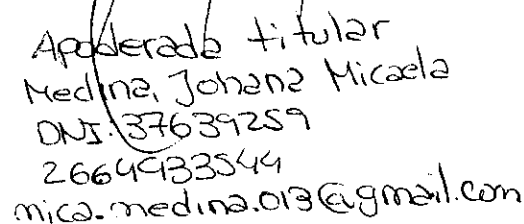 Apoderada titular
Medina, Johana Micaela
DNI: 37639259
2664933544
mica.medina.013@gmail.com